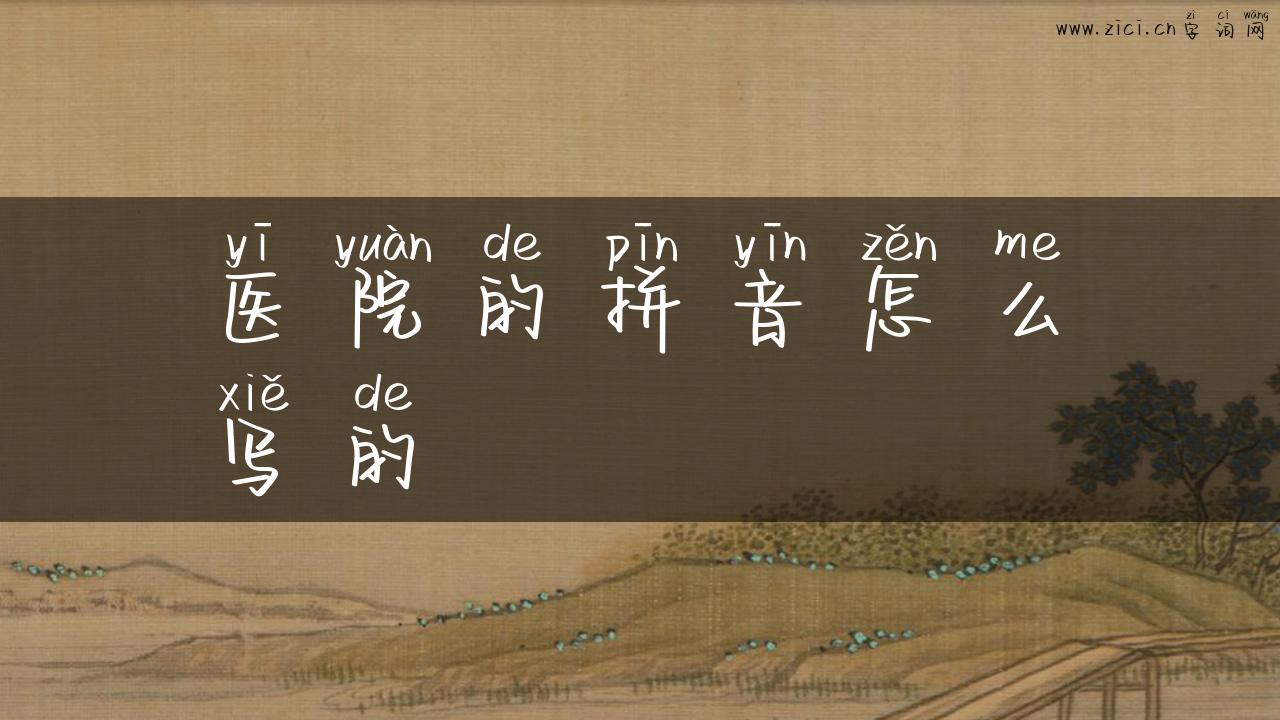 zì cí wǎng
www.zici.cn 字 词 网
yī yuàn de pīn yīn zěn me
医 院 的 拼 音 怎 么
xiě de
写 的